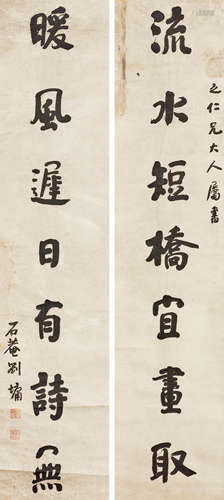 之仁兄大人屬書
流水短橋宜畫取
暖風遲日有詩無
石菴劉墉